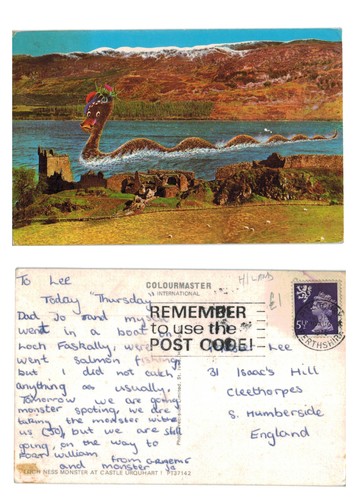 To Lee
Today "Thursday"
Dad Jo and myself
went in a boat on
Loch Faskally, were
went salmon fishing
but I did not catch
anything as usually.
Tomorrow we are going
monster spoting, we are
taking the monster with
us (Jo), but we are still
going, on the way to
Fort William from
and monster Jo
LOCH NESS MONSTER AT CASTLE URQUHART PT37142
COLOURMASTER
INTERNATIONAL
REMEMBER
to use the
POST CODE!
£1
5½P
PERTHSHIRE
Lee
31 Isaac's Hill
Cleethorpes
S. Humberside
England